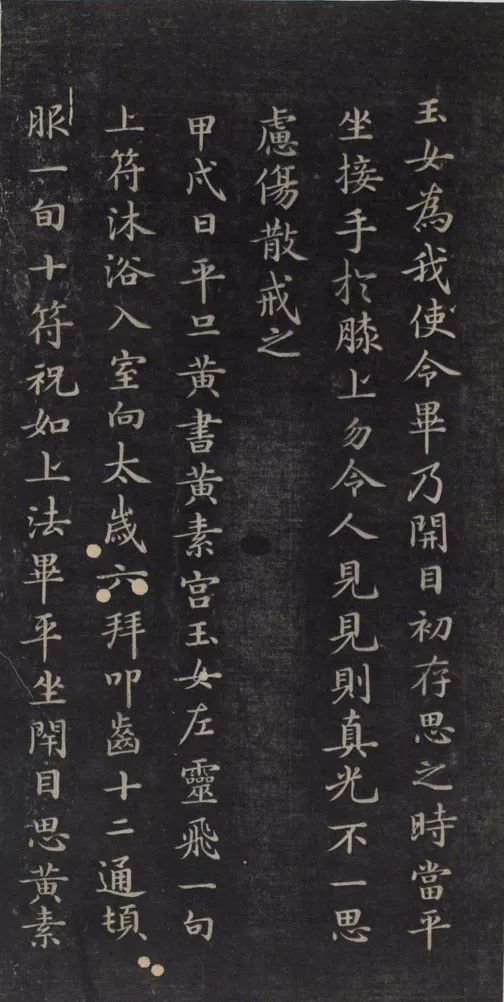 玉女為我使令畢乃開目初存思之時當平
坐接手於膝上勿令人見見則真光不一思
慮傷散戒之
甲戌日平旦黃書黃素宮玉女左靈飛一旬
上符沐浴入室向太歲六拜叩齒十二通頓
服一旬十符祝如上法畢平坐閇目思黃素